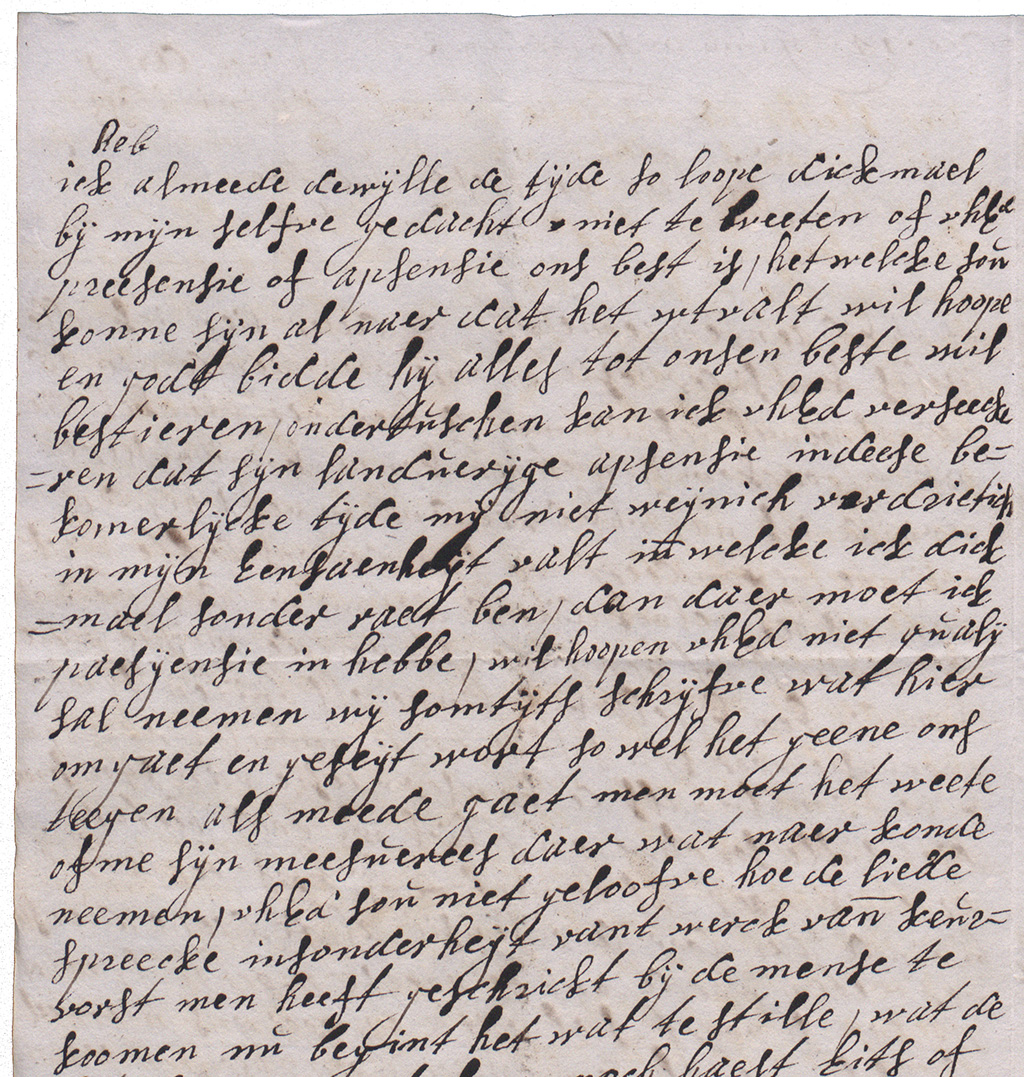 heb
ick almeede dewylle de tyde so loope dickmael
by myn selfve gedacht niet te weeten of uhEd
preesensie of apsensie ons best is, hetwelcke sou
konne syn al naer dat het utvalt wil hoope
en godt bidde hy alles tot onsen beste wil
bestieren, ondertuschen kan ick uhEd verseecke
=ren dat syn landueryge apsensie indeese be=
komerlycke tyde my niet weynich verdrietich
in myn Eensaenheyt valt in welcke ick dick
=mael sonder raet ben, dan daer moet ick
paesyensie in hebbe, wil hoopen uhEd niet qualy
sal neemen wy somtyts schryfve wat hier
omgaet en geseyt wort so wel het geene ons
teegen als meede gaet men moet het weete
of me syn meesuerees daer wat naer konde
neemen, uhEd sou niet geloofve hoe de liede
spreecke insonderheyt vant werck van keur=
vorst men heeft geschrickt by de mense te
koomen nu begint het wat te stille, wat de
noch haest Eits of